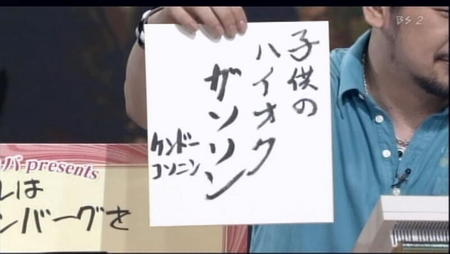 BS2
子供の
ハイオク
ガソリン
ケンドー
コソニン
バ presents
レは
ンバーグさ